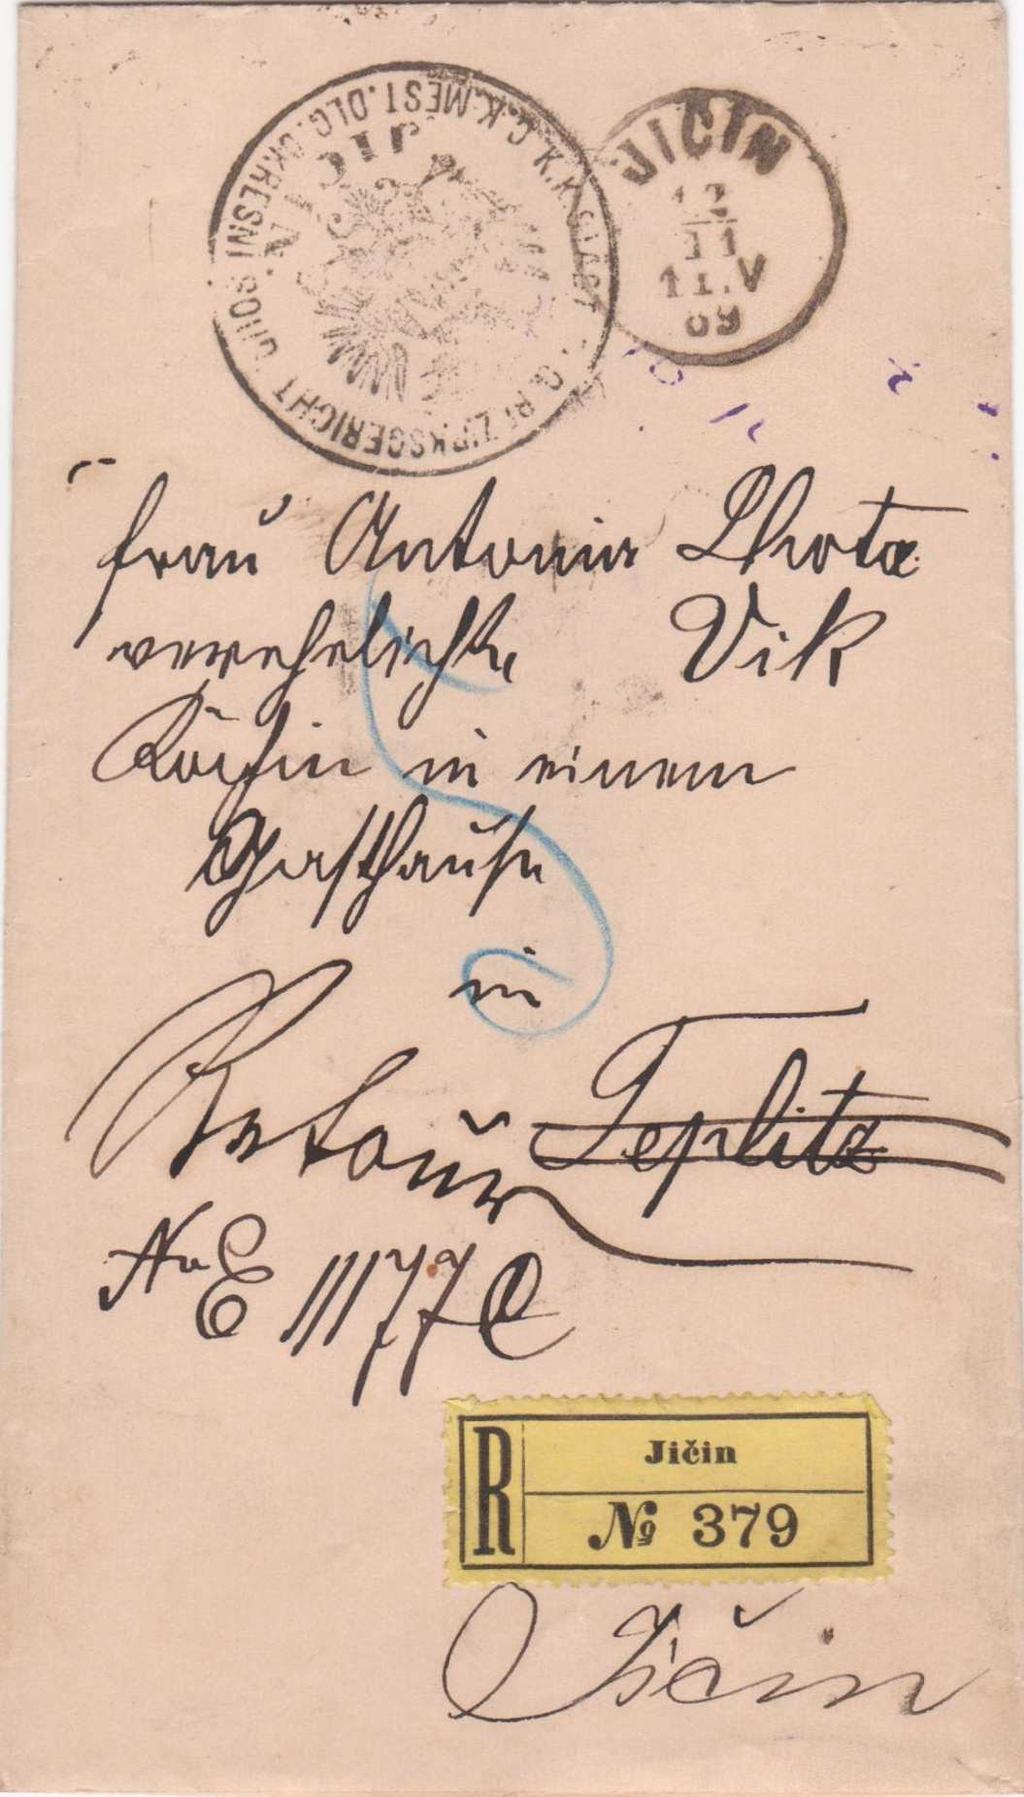 C. K. MĚST. DLG. OKRESNÍ SOUD
K. K. STÄDT. DLG. BEZIRKSGERICHT
JIČIN.
JIČIN
12
11
11.V
09
Frau Antonia Lhota
verehelichte Vik
Köchin in einem
Gasthause
in
Teplitz
Retour
E 1177
R
Jičin
№ 379
Jičin